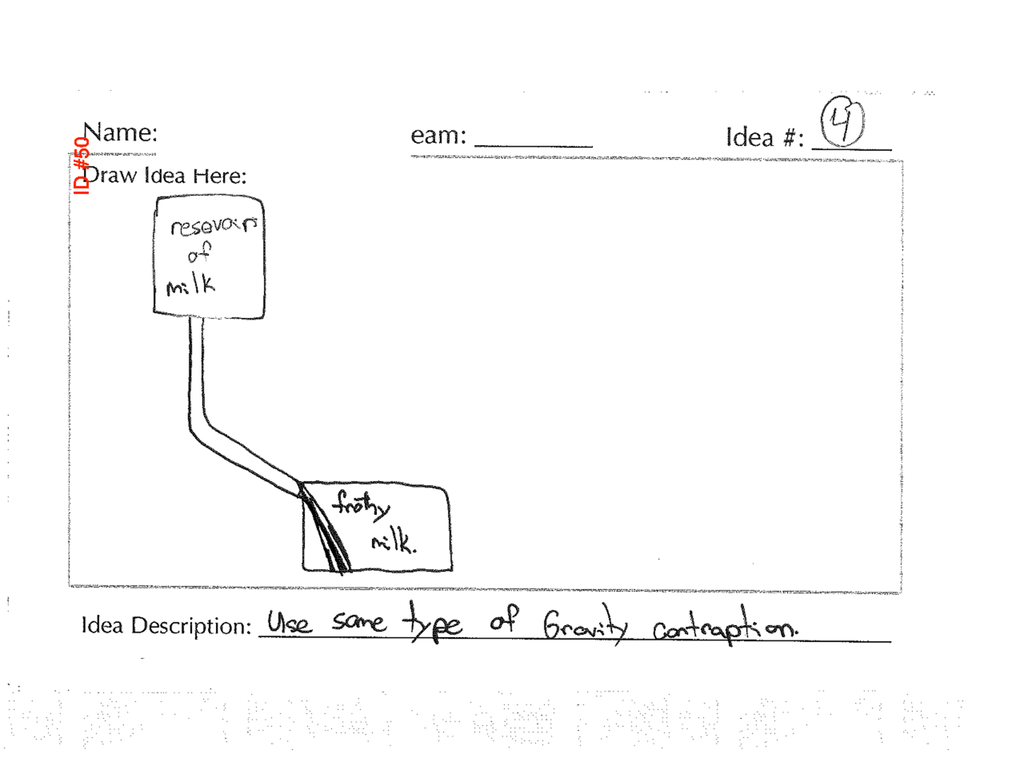 ID #50
Name:
eam:
Idea #: 4
Draw Idea Here:
resevoir
of
milk
frothy
milk.
Idea Description: Use same type of Gravity contraption.